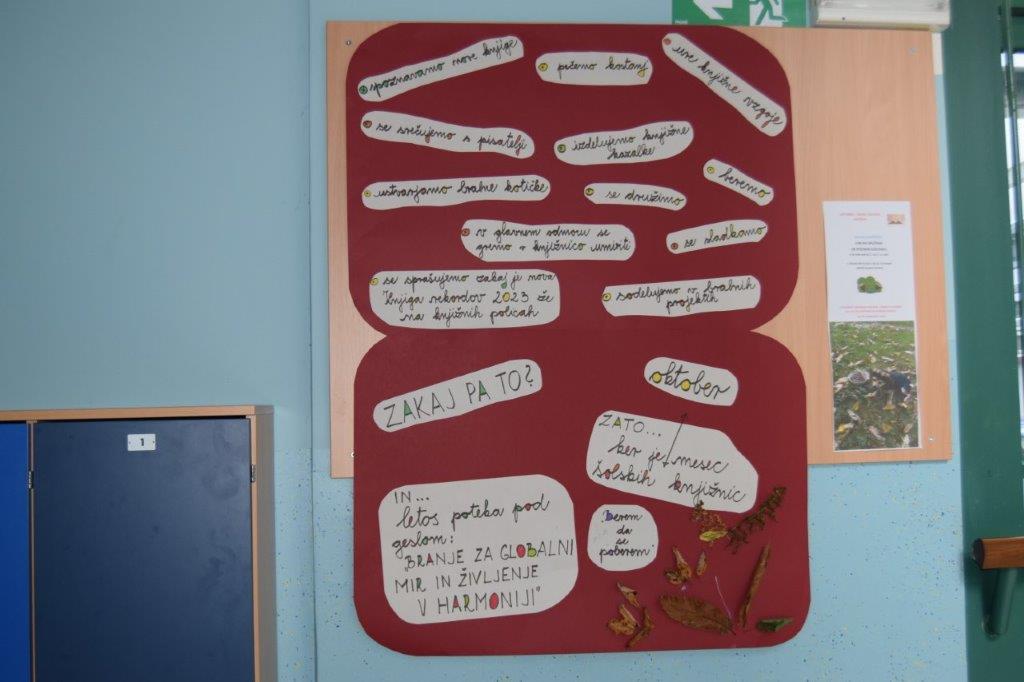 spoznavamo nove knjige
pečemo kostanj
ure knjižne vzgoje
se srečujemo s pisatelji
izdelujemo knjižne
kazalke
ustvarjamo bralne kotičke
se družimo
beremo
v glavnem odmoru se
gremo v knjižnico umirit
se sladkamo
se sprašujemo zakaj je nova
knjiga rekordov 2023 že
na knjižnih policah
sodelujemo v bralnih
projektih
ZAKAJ PA TO?
oktober
ZATO...
ker je mesec
šolskih knjižnic
IN...
letos poteka pod
geslom:
"BRANJE ZA GLOBALNI
MIR IN ŽIVLJENJE
V HARMONIJI"
"Berem
da
se
poberem"
1